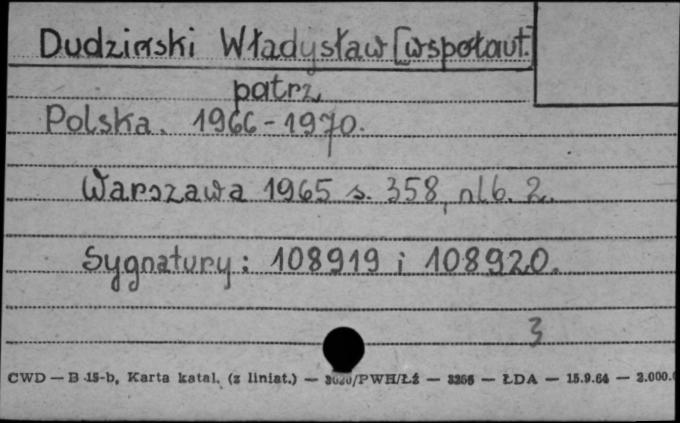 Dudziński Władysław [współaut.]
patrz
Polska. 1966-1970.
Warszawa 1965 s. 358, nlb. 2.
Sygnatury: 108919 i 108920.
3
CWD — B 15-b, Karta katal. (z liniat.) — /PWH/Łź — — ŁDA — 15.9.64 — 2.000.